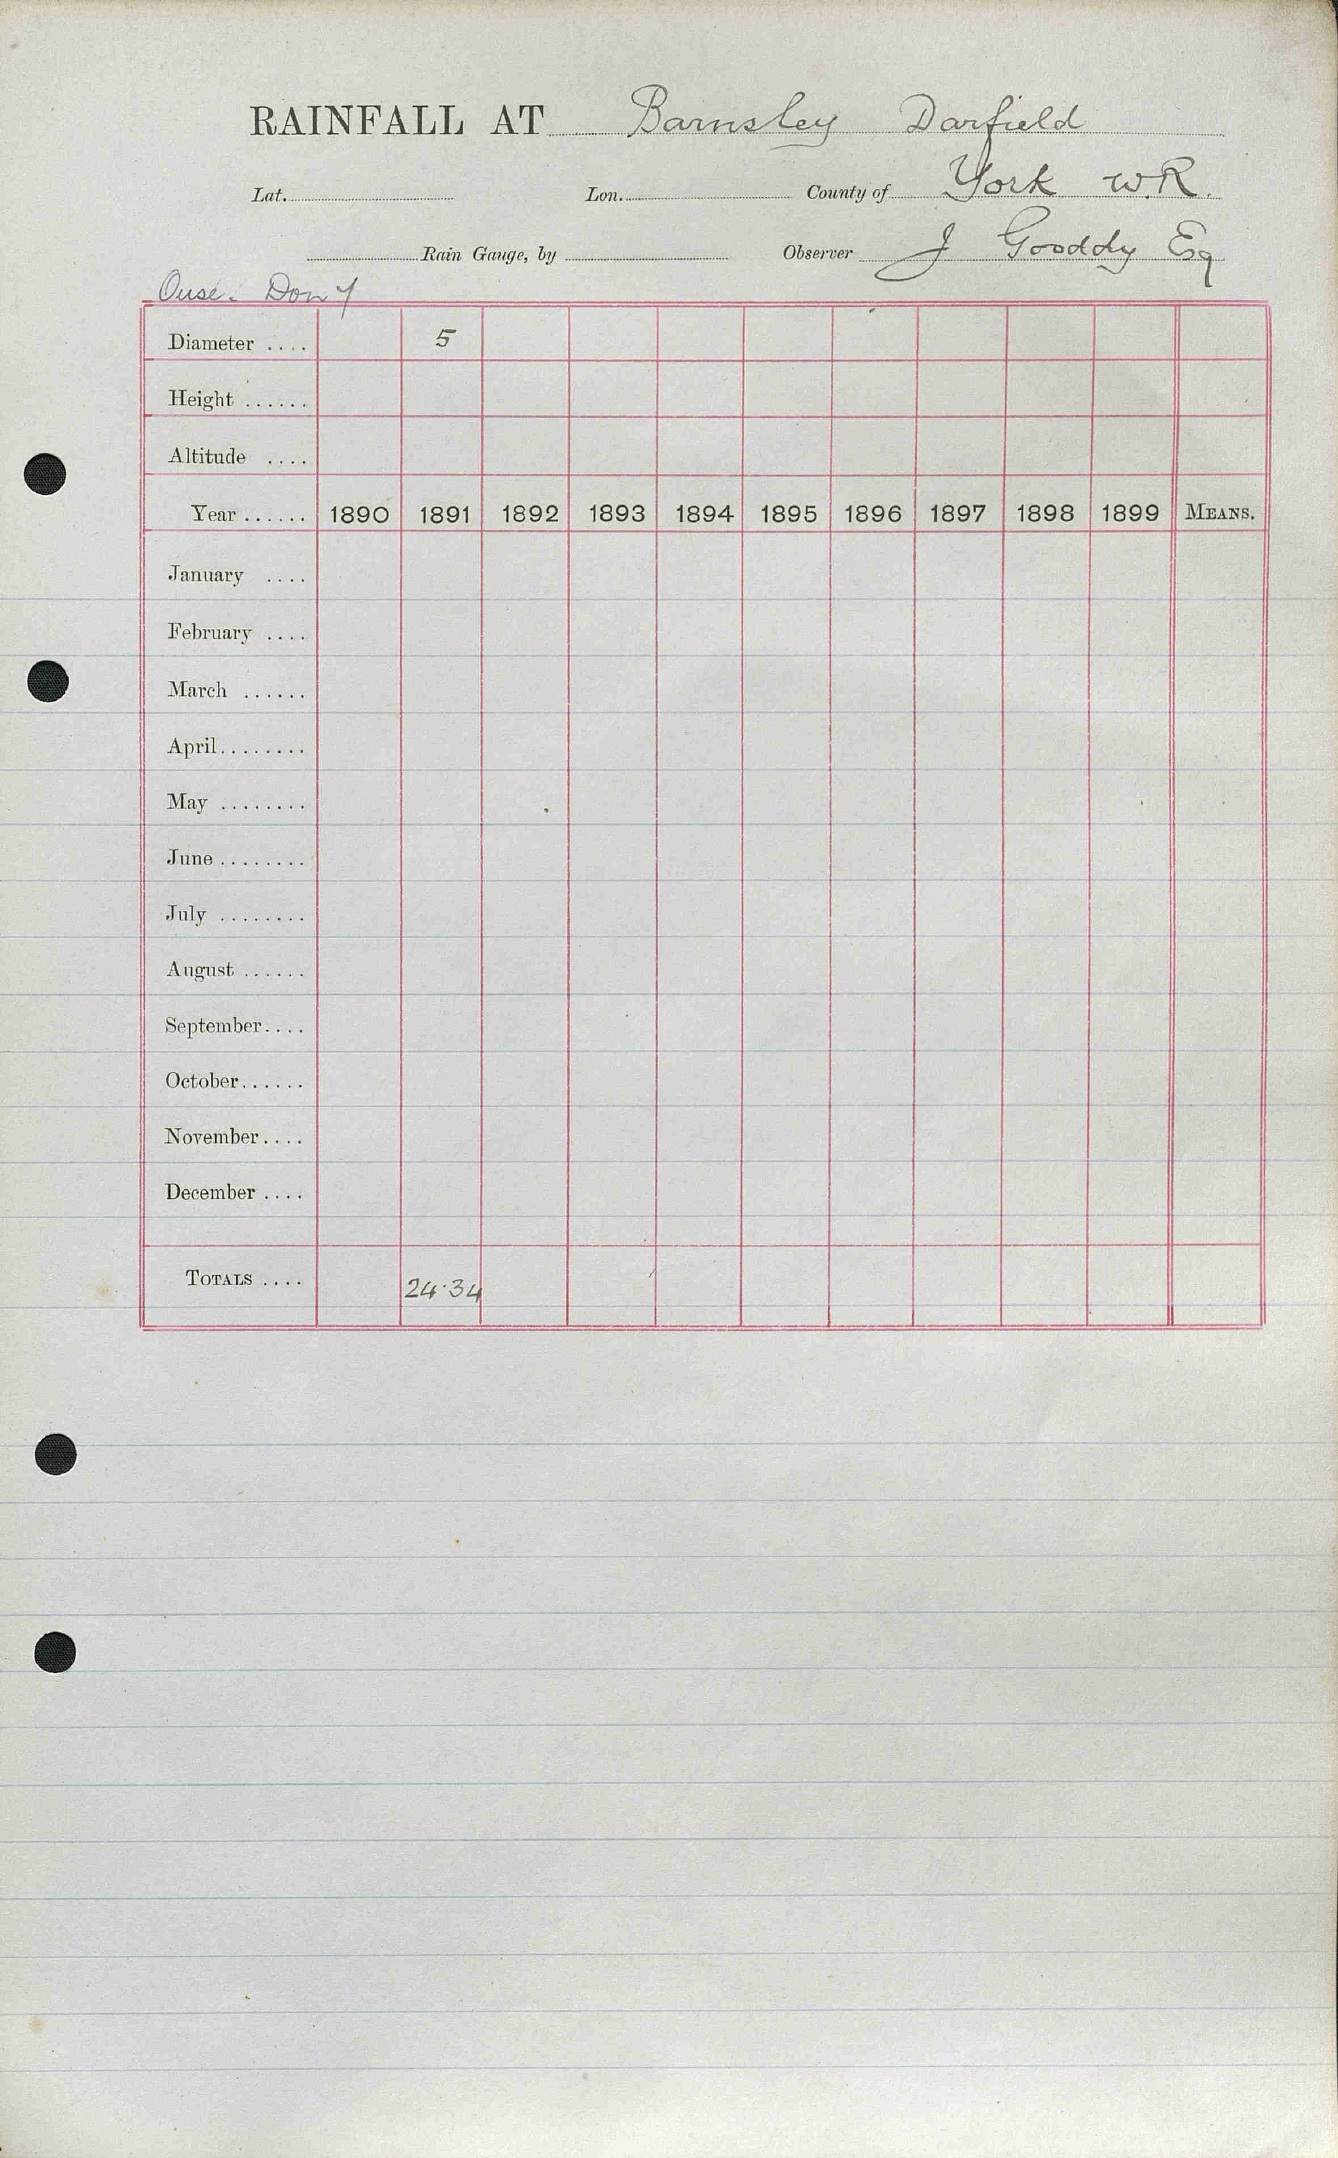 RAINFALL AT Barnsley Darfield
Lat. Lon. County of York W.R.
Rain Gauge, by Observer J Gooddy Esq
Ouse. Don
Diameter .... 5
Height ......
Altitude ....
Year ...... 1890 1891 1892 1893 1894 1895 1896 1897 1898 1899 MEANS.
January ....
February ....
March ......
April ........
May ........
June ........
July ........
August ......
September ....
October ......
November ....
December ....
TOTALS .... 24.34